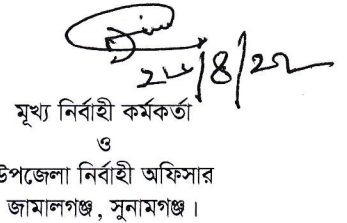 ২৮/৪/২২
মুখ্য নির্বাহী কর্মকর্তা
ও
উপজেলা নির্বাহী অফিসার
জামালগঞ্জ, সুনামগঞ্জ।